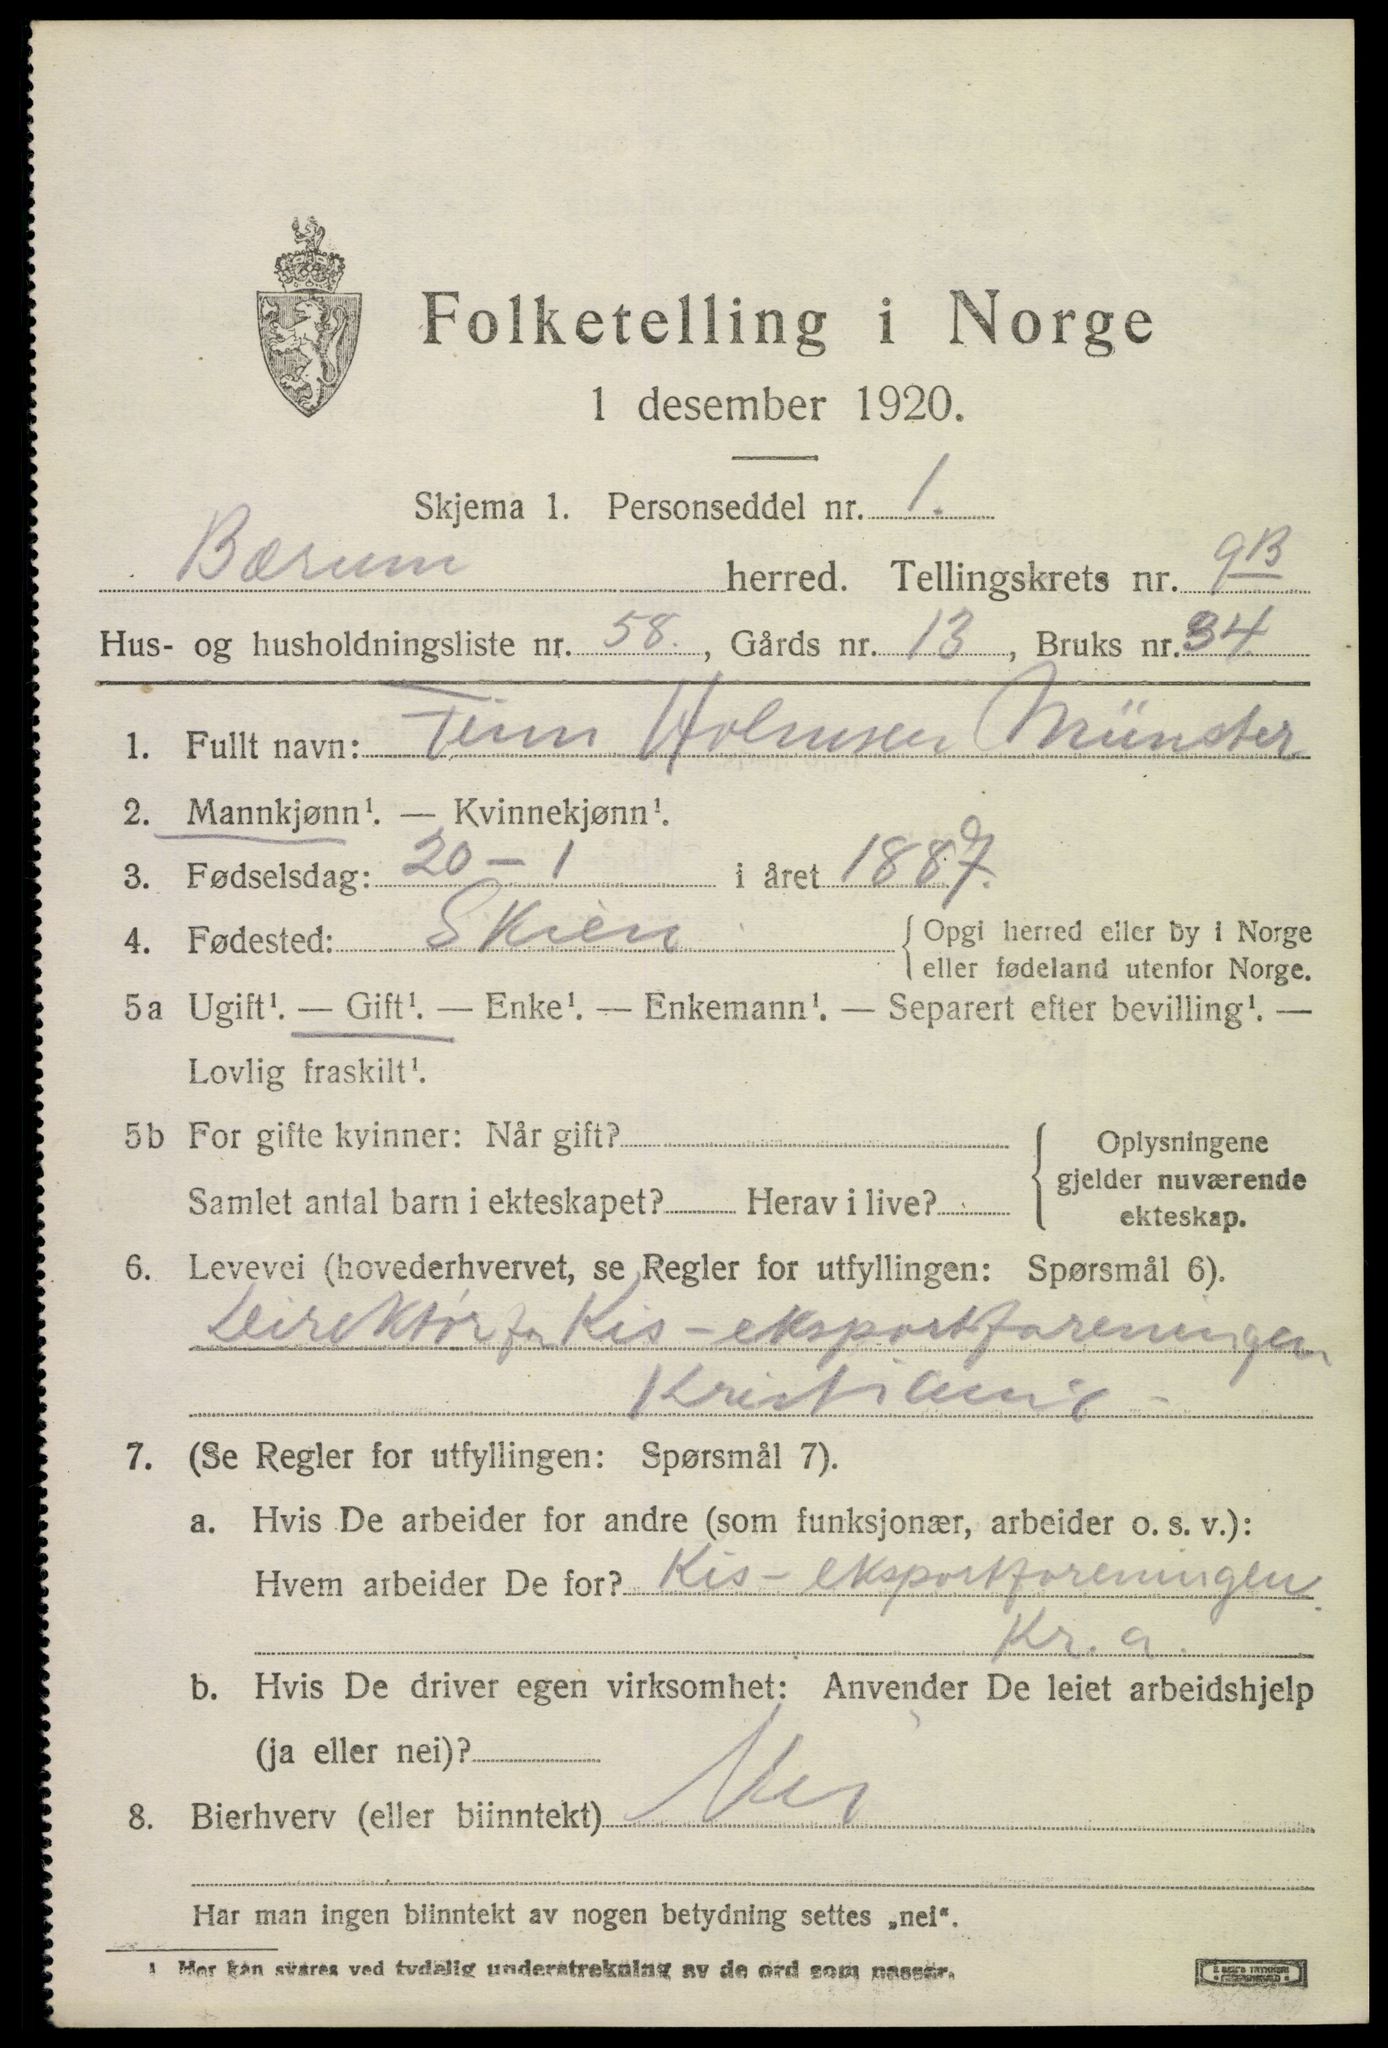 Folketelling i Norge
1 desember 1920.
Skjema 1. Personseddel nr. 1.
Bærum herred. Tellingskrets nr. 9B
Hus- og husholdningsliste nr. 58. , Gårds nr. 13 , Bruks nr. 34
1. Fullt navn: Finn Holmsen Münster
2. Mannkjønn¹. — Kvinnekjønn¹.
3. Fødselsdag: 20 – 1 i året 1887.
4. Fødested: Skien { Opgi herred eller by i Norge
eller fødeland utenfor Norge.
5a Ugift¹. — Gift¹. — Enke¹. — Enkemann¹. — Separert efter bevilling¹. —
Lovlig fraskilt¹.
5b For gifte kvinner: Når gift?
Samlet antal barn i ekteskapet? Herav i live?
{ Oplysningene
gjelder nuværende
ekteskap.
6. Levevei (hovederhvervet, se Regler for utfyllingen: Spørsmål 6).
Direktør for Kis-eksportforeningen
Kristiania –
7. (Se Regler for utfyllingen: Spørsmål 7).
a. Hvis De arbeider for andre (som funksjonær, arbeider o. s. v.):
Hvem arbeider De for? Kis-eksportforeningen
Kr.a.
b. Hvis De driver egen virksomhet: Anvender De leiet arbeidshjelp
(ja eller nei)?
8. Bierhverv (eller biinntekt) Nei
Har man ingen biinntekt av nogen betydning settes „nei“.
¹ Her kan svares ved tydelig understrekning av de ord som passer.